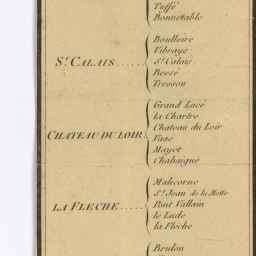 Tuffé
Bonnetable
Boulloire
Vibraye
St. Calais
St. CALAIS
Bessé
Tresson
Grand Lucé
la Chartre
Chateau du Loir
CHATEAU DU LOIR
Vaas
Mayet
Chahaigne
Malicorne
St. Jean de la Motte
Pont Vallain
LA FLECHE
le Lude
la Fleche
Brulon